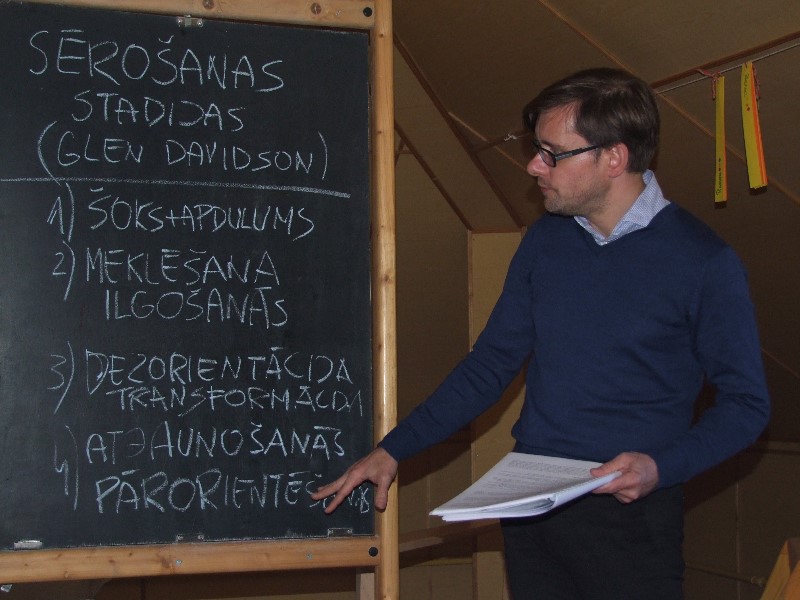 SĒROŠANAS
STADIJAS
(GLEN DAVIDSON)
1) ŠOKS+APDULUMS
2) MEKLĒŠANA
ILGOŠANĀS
3) DEZORIENTĀCIJA
TRANSFORMĀCIJA
4) ATJAUNOŠANĀS